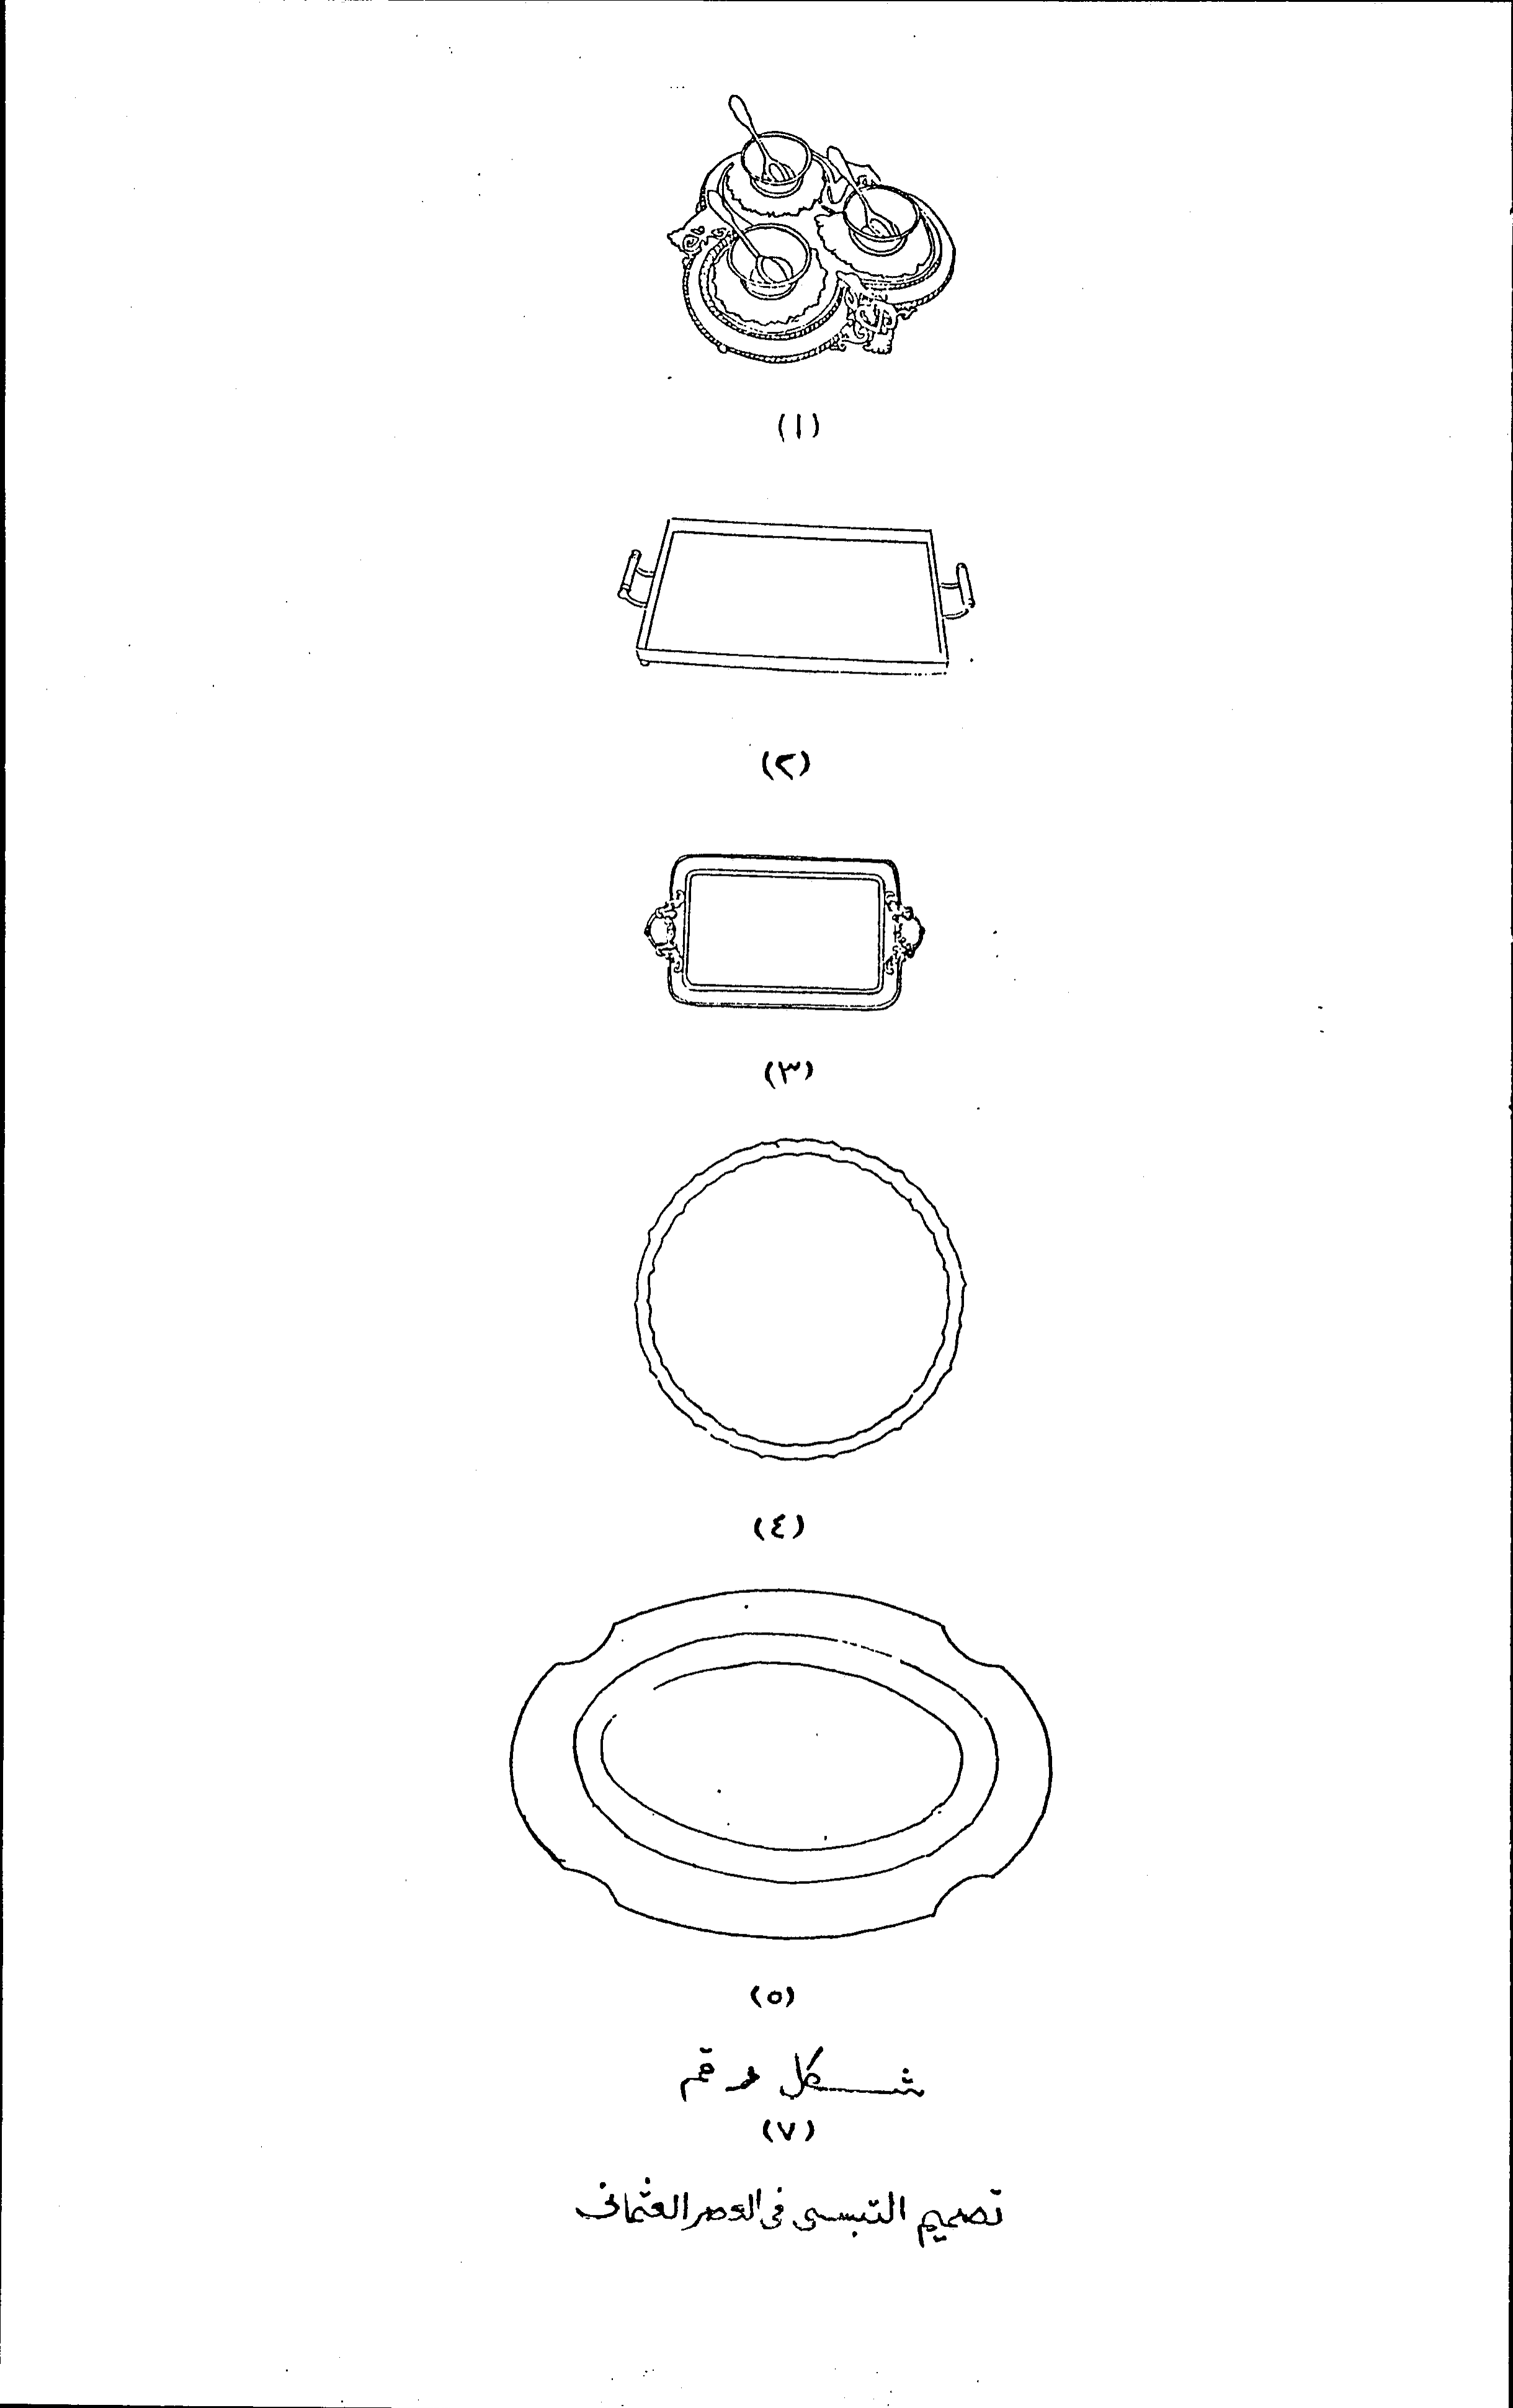 (١)
(٢)
(٣)
(٤)
(٥)
شكل رقم
(٧)
تصميم التبسى فى العصر العثمانى